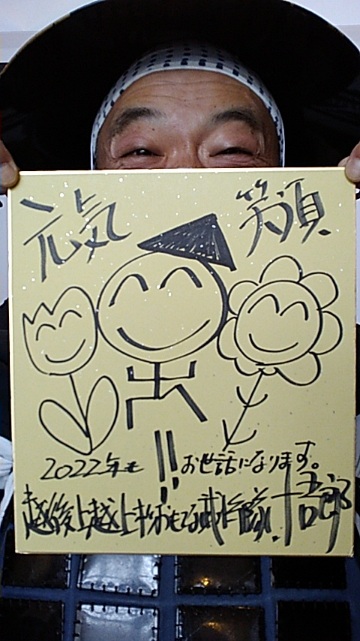 元気 笑顔
出
!!
2022年も お世話になります。
越後上越上杉おもてなし武将隊 十吾郎